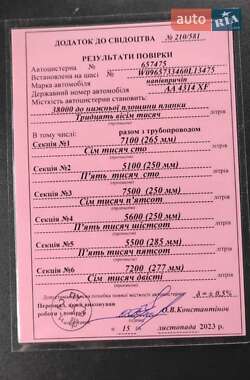 auto.ria.com
ДОДАТОК ДО СВІДОЦТВА № 210/581
РЕЗУЛЬТАТИ ПОВІРКИ
Автоцистерна № 657475
Встановлена на шасі № W0965733460L13475
Марка автомобіля напівпричіп
Державний номер автомобіля АА 4314 XF
Місткість автоцистерни становить:
38000 до нижньої площини планки літрів
Тридцять вісім тисяч
(прописом)
В тому числі: разом з трубопроводом
Секція №1 7100 (265 мм) літрів
Сім тисяч сто
(прописом)
Секція №2 5100 (250 мм) літрів
П'ять тисяч сто
(прописом)
Секція №3 7500 (250 мм) літрів
Сім тисяч п'ятсот
(прописом)
Секція №4 5600 (250 мм) літрів
П'ять тисяч шістсот
(прописом)
Секція №5 5500 (285 мм) літрів
П'ять тисяч п'ятсот
(прописом)
Секція №6 7200 (277 мм) літрів
Сім тисяч двісті
(прописом)
похибка повної місткості автоцистерни δ = ± 0,5%
О.В.Константінов
15 листопада 2023 р.